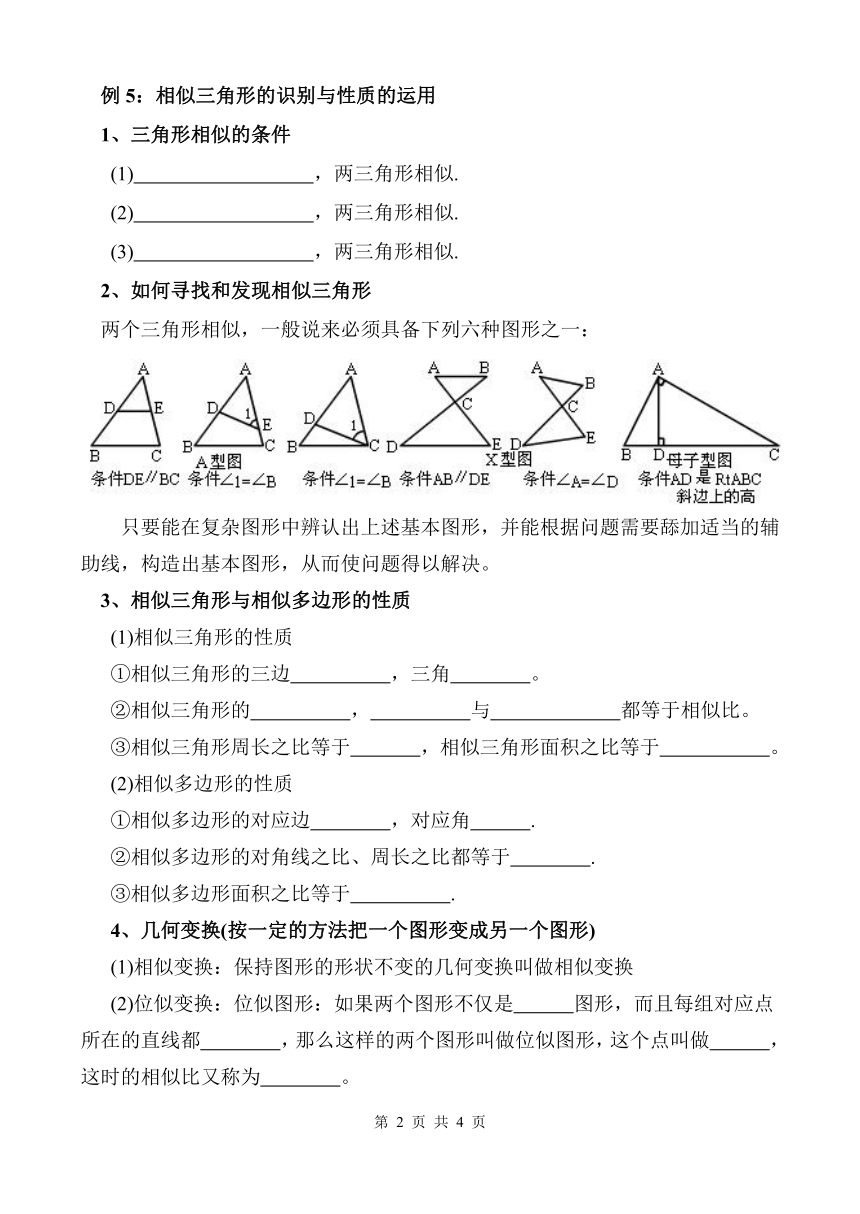 例5：相似三角形的识别与性质的运用
1、三角形相似的条件
(1)__________________，两三角形相似.
(2)__________________，两三角形相似.
(3)__________________，两三角形相似.
2、如何寻找和发现相似三角形
两个三角形相似，一般说来必须具备下列六种图形之一：
A A A A B A B A
D E D 1 E D 1 C C
B C B C B C D E D E B D C
A型图 X型图 母子型图
条件DE∥BC 条件∠1=∠B 条件∠1=∠B 条件AB∥DE 条件∠A=∠D 条件AD是RtABC
斜边上的高
只要能在复杂图形中辨认出上述基本图形，并能根据问题需要舔加适当的辅
助线，构造出基本图形，从而使问题得以解决。
3、相似三角形与相似多边形的性质
(1)相似三角形的性质
①相似三角形的三边__________，三角________。
②相似三角形的__________，__________与_____________都等于相似比。
③相似三角形周长之比等于_______，相似三角形面积之比等于___________。
(2)相似多边形的性质
①相似多边形的对应边________，对应角______.
②相似多边形的对角线之比、周长之比都等于________.
③相似多边形面积之比等于__________.
4、几何变换(按一定的方法把一个图形变成另一个图形)
(1)相似变换：保持图形的形状不变的几何变换叫做相似变换
(2)位似变换：位似图形：如果两个图形不仅是______图形，而且每组对应点
所在的直线都________，那么这样的两个图形叫做位似图形，这个点叫做______，
这时的相似比又称为________。
第 2 页 共 4 页